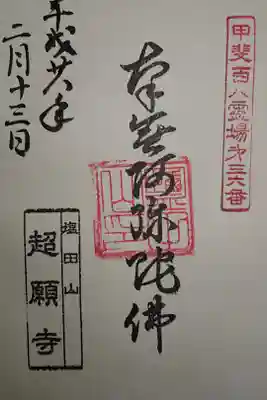 甲斐百八霊場第三六番
奉拝
南無阿弥陀佛
平成廿八年
二月十三日
塩田山
超願寺